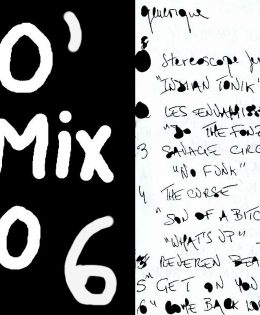 0'
Mix
0
6
generique
Stereoscope
"INDIAN TONIK"
LES ENVAHISS
"DO THE FONZ
3 SAVAGE CIRC
"NO FUNK"
4 THE CURSE
"SON OF A BITC
"WHAT'S UP"
5 REVEREN BEA
5" GET ON YOU
6" COME BACK